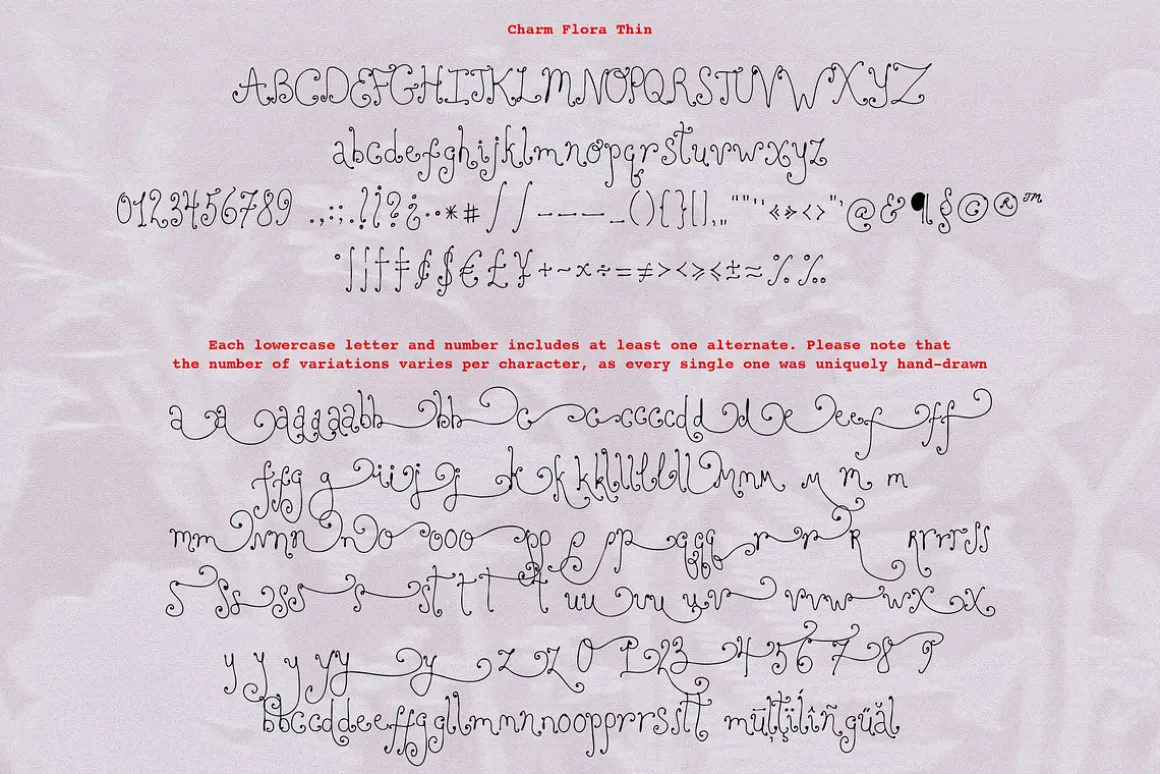 Charm Flora Thin
ABCDEFGHIJKLMNOPQRSTUVWXYZ
abcdefghijklmnopqrstuvwxyz
0123456789 .,:;.!¡?¿··*#//-–—_(){}[]‚„“”‘’«»‹›"'@&¶§©®™
°¦¡†‡¢$€£¥+~×÷=≠><≥≤±≈%‰
Each lowercase letter and number includes at least one alternate. Please note that
the number of variations varies per character, as every single one was uniquely hand-drawn
a a aaaaabb bb c c ccccdd d e eeef ff
ffg g iijj k k kklllllll mmm m m m
mm nnn no ooo pp p pp qqq r r R Rrrrss
s ss ss s st t t t uu uu uv vvw wx x
y y y yy y z z 0 1 23 4 56 7 8 9
bbccddeeffggllmmnnooppprrsstt müļţïlíîñgűăl